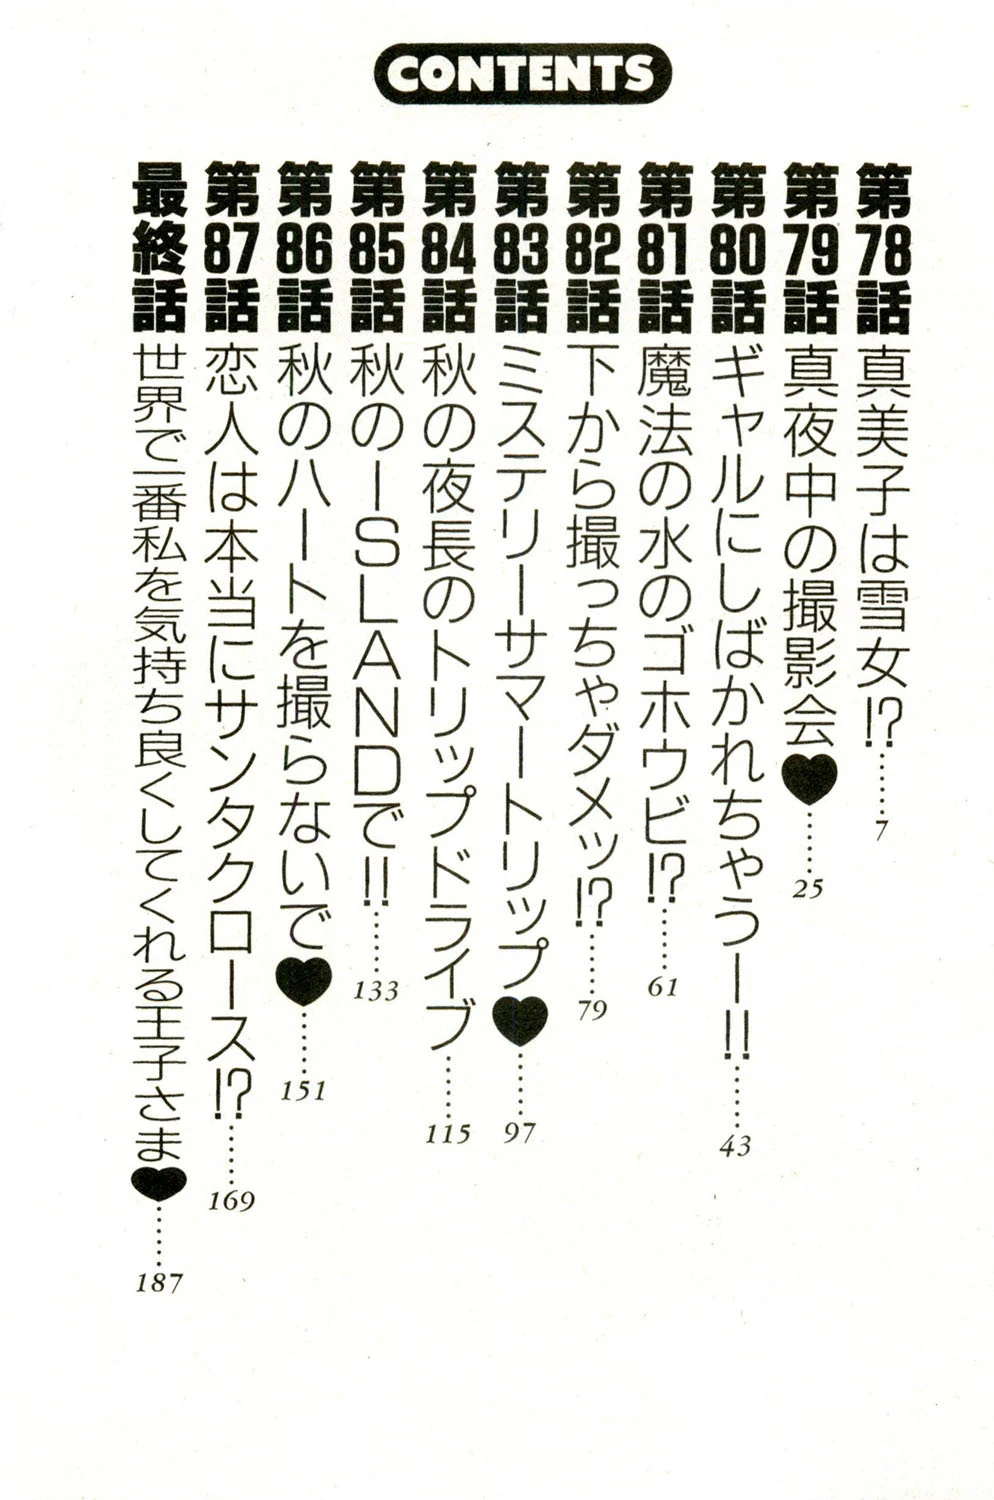 CONTENTS
第78話 真美子は雪女!?……7
第79話 真夜中の撮影会♥……25
第80話 ギャルにしばかれちゃうー!!……43
第81話 魔法の水のゴホウビ!?……61
第82話 下から撮っちゃダメッ!?……79
第83話 ミステリーサマートリップ♥……97
第84話 秋の夜長のトリップドライブ……115
第85話 秋のISLANDで!!……133
第86話 秋のハートを撮らないで♥……151
第87話 恋人は本当にサンタクロース!?……169
最終話 世界で一番私を気持ち良くしてくれる王子さま♥……187